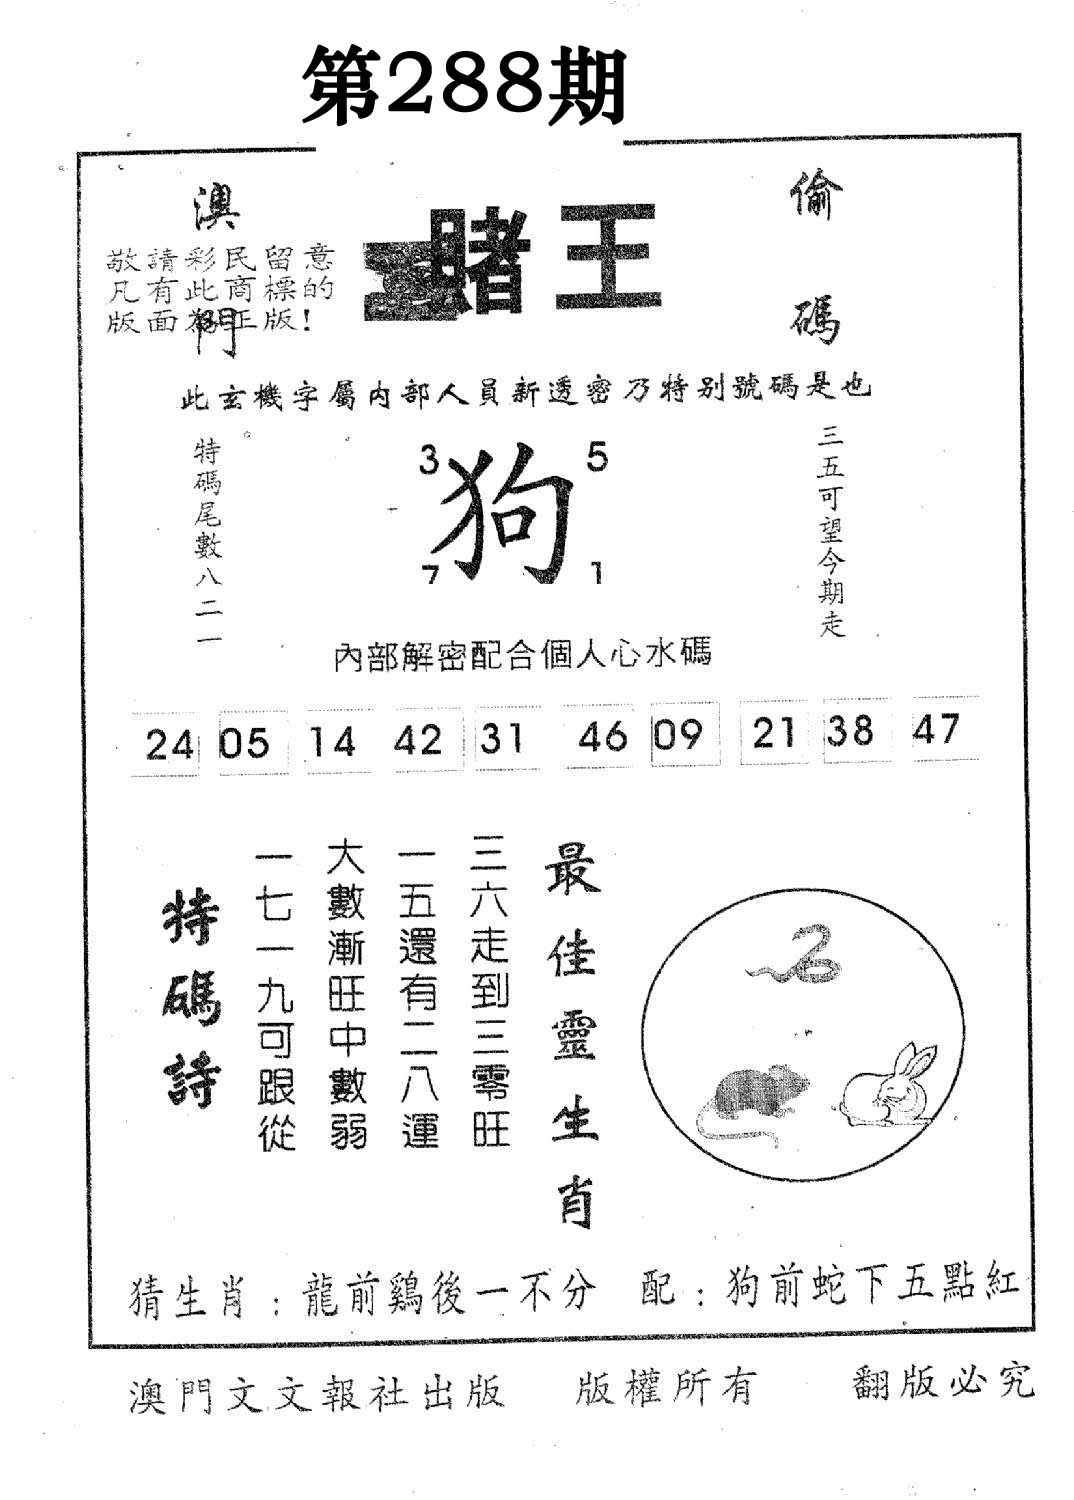 第288期
澳門
賭王
偷碼
敬請彩民留意
凡有此商標的
版面為正版!
此玄機字屬内部人員新透密乃特别號碼是也
特碼尾數八二一
3
5
狗
7
1
三五可望今期走
內部解密配合個人心水碼
24 05 14 42 31 46 09 21 38 47
特碼詩
一七一九可跟從
大數漸旺中數弱
一五還有二八運
三六走到三零旺
最佳靈生肖
猜生肖：龍前鷄後一不分 配：狗前蛇下五點紅
澳門文文報社出版 版權所有 翻版必究